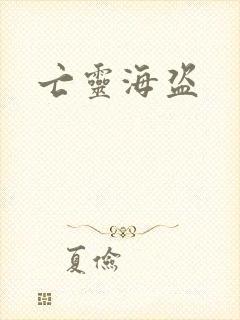 亡靈海盜
夏儉